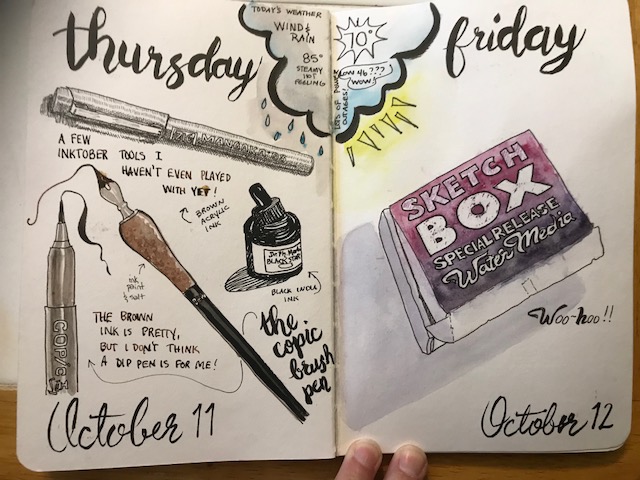 thursday
TODAY'S WEATHER
WIND &
RAIN
85°
STEAMY
HOT
FEELING
A FEW
INKTOBER TOOLS I
HAVEN'T EVEN PLAYED
WITH YET!
BROWN
ACRYLIC
INK
ink,
paint
& salt
BLACK STAR
BLACK INDIA
INK
COPIC
THE BROWN
INK IS PRETTY,
BUT I DON'T THINK
A DIP PEN IS FOR ME!
the
copic
brush
pen
October 11
friday
70°
LOW 46???
(WOW!)
LOTS OF POWER
OUTAGES!
SKETCH
BOX
SPECIAL RELEASE
Water Media
Woo-hoo!!
October 12